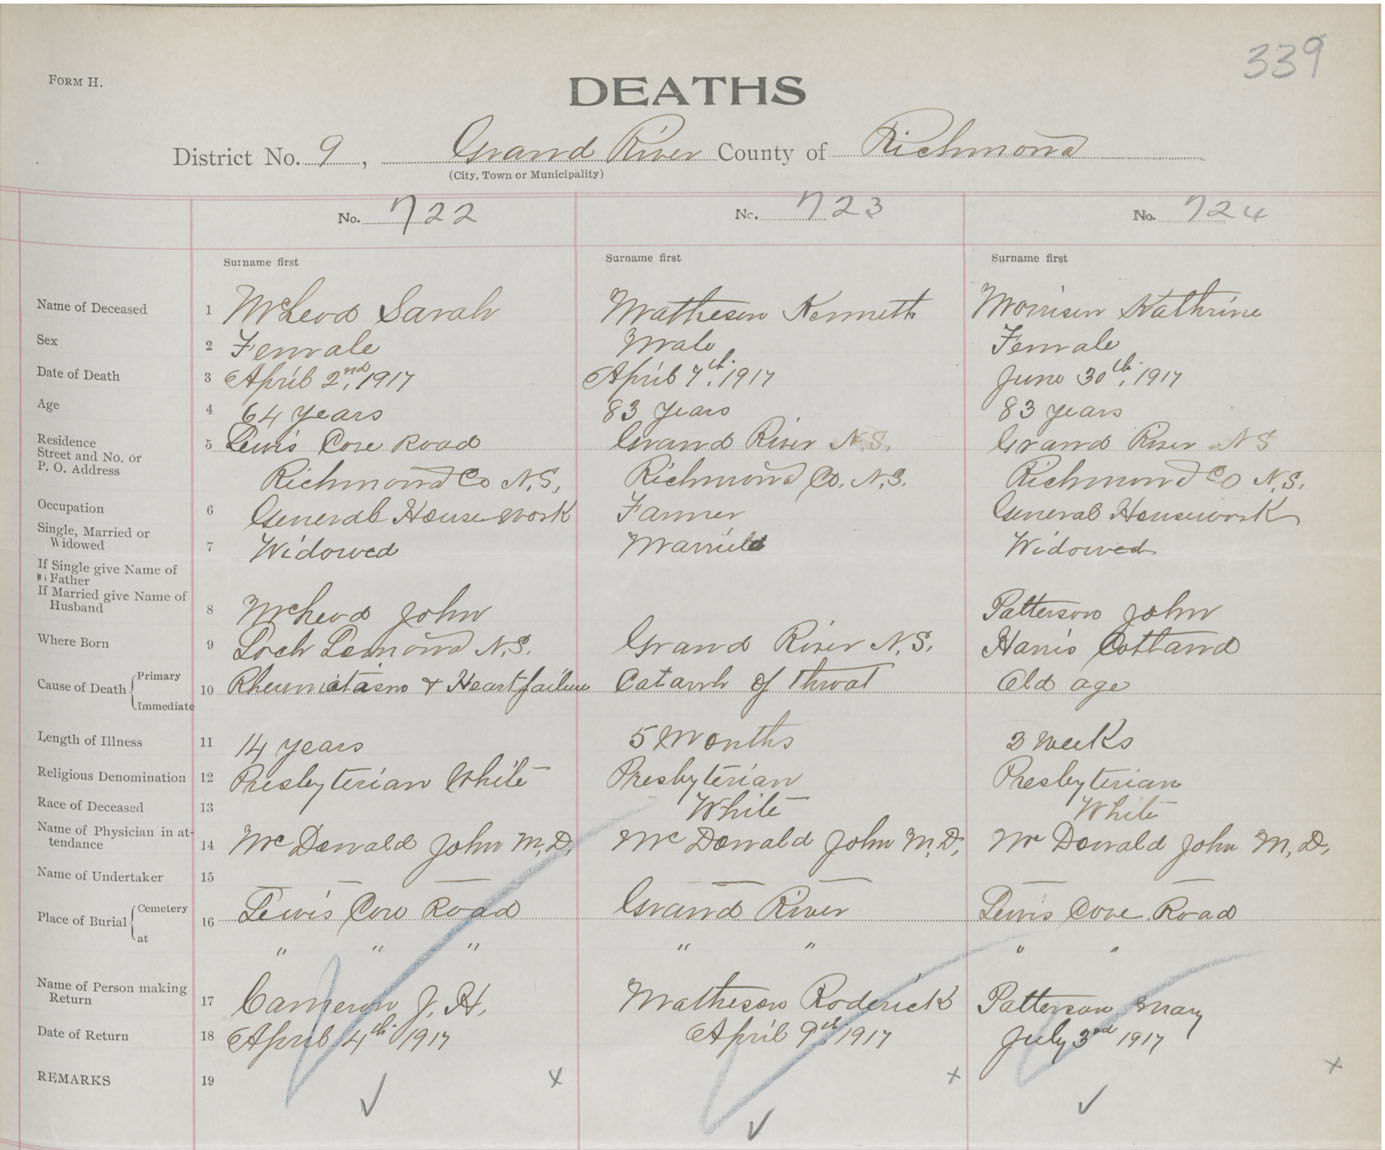 339
FORM H.
DEATHS
District No. 9, Grand River County of Richmond
(City, Town or Municipality)
No. 722 No. 723 No. 724
Surname first Surname first Surname first
Name of Deceased 1 McLeod Sarah Matheson Kenneth Morrison Kathrine
Sex 2 Female Male Female
Date of Death 3 April 2nd, 1917 April 7th, 1917 June 30th, 1917
Age 4 64 years 83 years 83 years
Residence 5 Lewis Cove Road Grand River N.S. Grand River N S
Street and No. or
P. O. Address Richmond Co N.S, Richmond Co. N.S. Richmond Co N.S.
Occupation 6 General House work Farmer General Housework
Single, Married or
Widowed 7 Widowed Married Widowed
If Single give Name of
Father
If Married give Name of
Husband 8 McLeod John Patterson John
Where Born 9 Loch Lomond N.S. Grand River N.S. Harris Cottand
Cause of Death Primary 10 Rheumatism & Heart failure Catarrh of throat Old age
Immediate
Length of Illness 11 14 years 5 Months 3 weeks
Religious Denomination 12 Presbyterian White Presbyterian Presbyterian
Race of Deceased 13 White White
Name of Physician in at-
tendance 14 McDonald John M.D. McDonald John M.D. McDonald John M.D.
Name of Undertaker 15 — — — — — —
Place of Burial Cemetery 16 Lewis Cove Road Grand River Lewis Cove Road
at " " " " " " "
Name of Person making
Return 17 Cameron J. H. Matheson Roderick Patterson Mary
Date of Return 18 April 4th 1917 April 9th 1917 July 3rd 1917
REMARKS 19 ✓ x ✓ x ✓ x